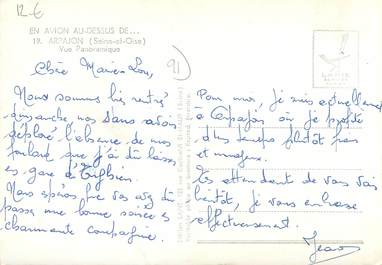 12 €
EN AVION AU-DESSUS DE...
19. ARPAJON (Seine-et-Oise)
Vue Panoramique
91
Chère Marie-Lou,
Nous sommes bien rentrés
dimanche, nous avons
déploré l'absence de mon
foulard que j'ai dû laisser
en gare d'
Nous espérons que vous avez dû
passer une bonne soirée en
charmante compagnie.
Pour moi, je suis actuellement
à Arpajon où je profite
d'un temps plutôt gris
et nuageux.
En attendant de vous voir
bientôt, je vous embrasse
affectueusement.
Jean